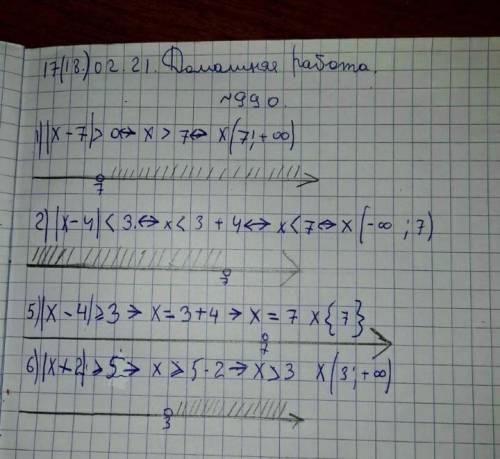 17(18.)02.21. Домашняя работа.
~990.
1) |x-7|>0↔ x > 7↔ x(7;+∞)
7
2) |x-4|<3.↔x<3+4↔x<7↔x(-∞;7)
7
5) |x-4|≥3→x=3+4→x=7 x{7}
7
6) |x+2|≥5→x≥5-2→x≥3 x(3;+∞)
3